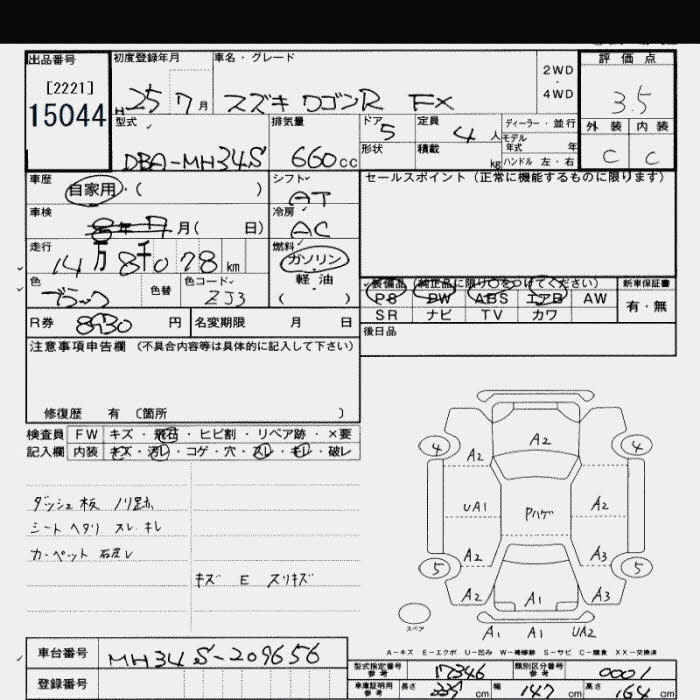 出品番号 初度登録年月 車名・グレード 2WD ・ 4WD 評価点
[2221]
15044
H 25 7月 スズキ ワゴンR FX 3.5
型式 排気量 ドア 5 定員 4人 ディーラー・並行 外装 内装
モデル年式 年
DBA-MH34S 660cc 形状 積載 kg ハンドル 左・右 C C
車歴 自家用・( ) シフト AT セールスポイント(正常に機能するものに限ります)
車検 月( 日) 冷房 AC
走行 14万8千078km 燃料 ガソリン
軽油
( )
色 ブラック 色替 色コード ZJ3
装備品(純正品に限り○をつけてください) 新車保証書
PS PW ABS エアB AW 有・無
SR ナビ TV カワ
R券 8930円 名変期限 月 日
後日品
注意事項申告欄(不具合内容等は具体的に記入して下さい)
修復歴 有 〔箇所 〕
検査員 FW キズ・飛石・ヒビ割・リペア跡・×要
記入欄 内装 キズ・汚レ・コゲ・穴・スレ・キレ・破レ
ダッシュ板 ノリ跡
シート ヘタリ スレ キレ
カーペット
キズ E スリキズ
4 A2 A2 4
UA1 Pハゲ A2
A2 A3
5 A2 A1 A3 5
スペア
A1 A1 UA2
A-キズ E-エクボ U-凹み W-補修跡 S-サビ C-腐食 XX-交換済
車台番号 MH34S-209656
型式指定番号 参考 17346 類別区分番号 参考 0001
登録番号
車庫証明用 参考 長さ 339cm 幅 147cm 高さ 164cm